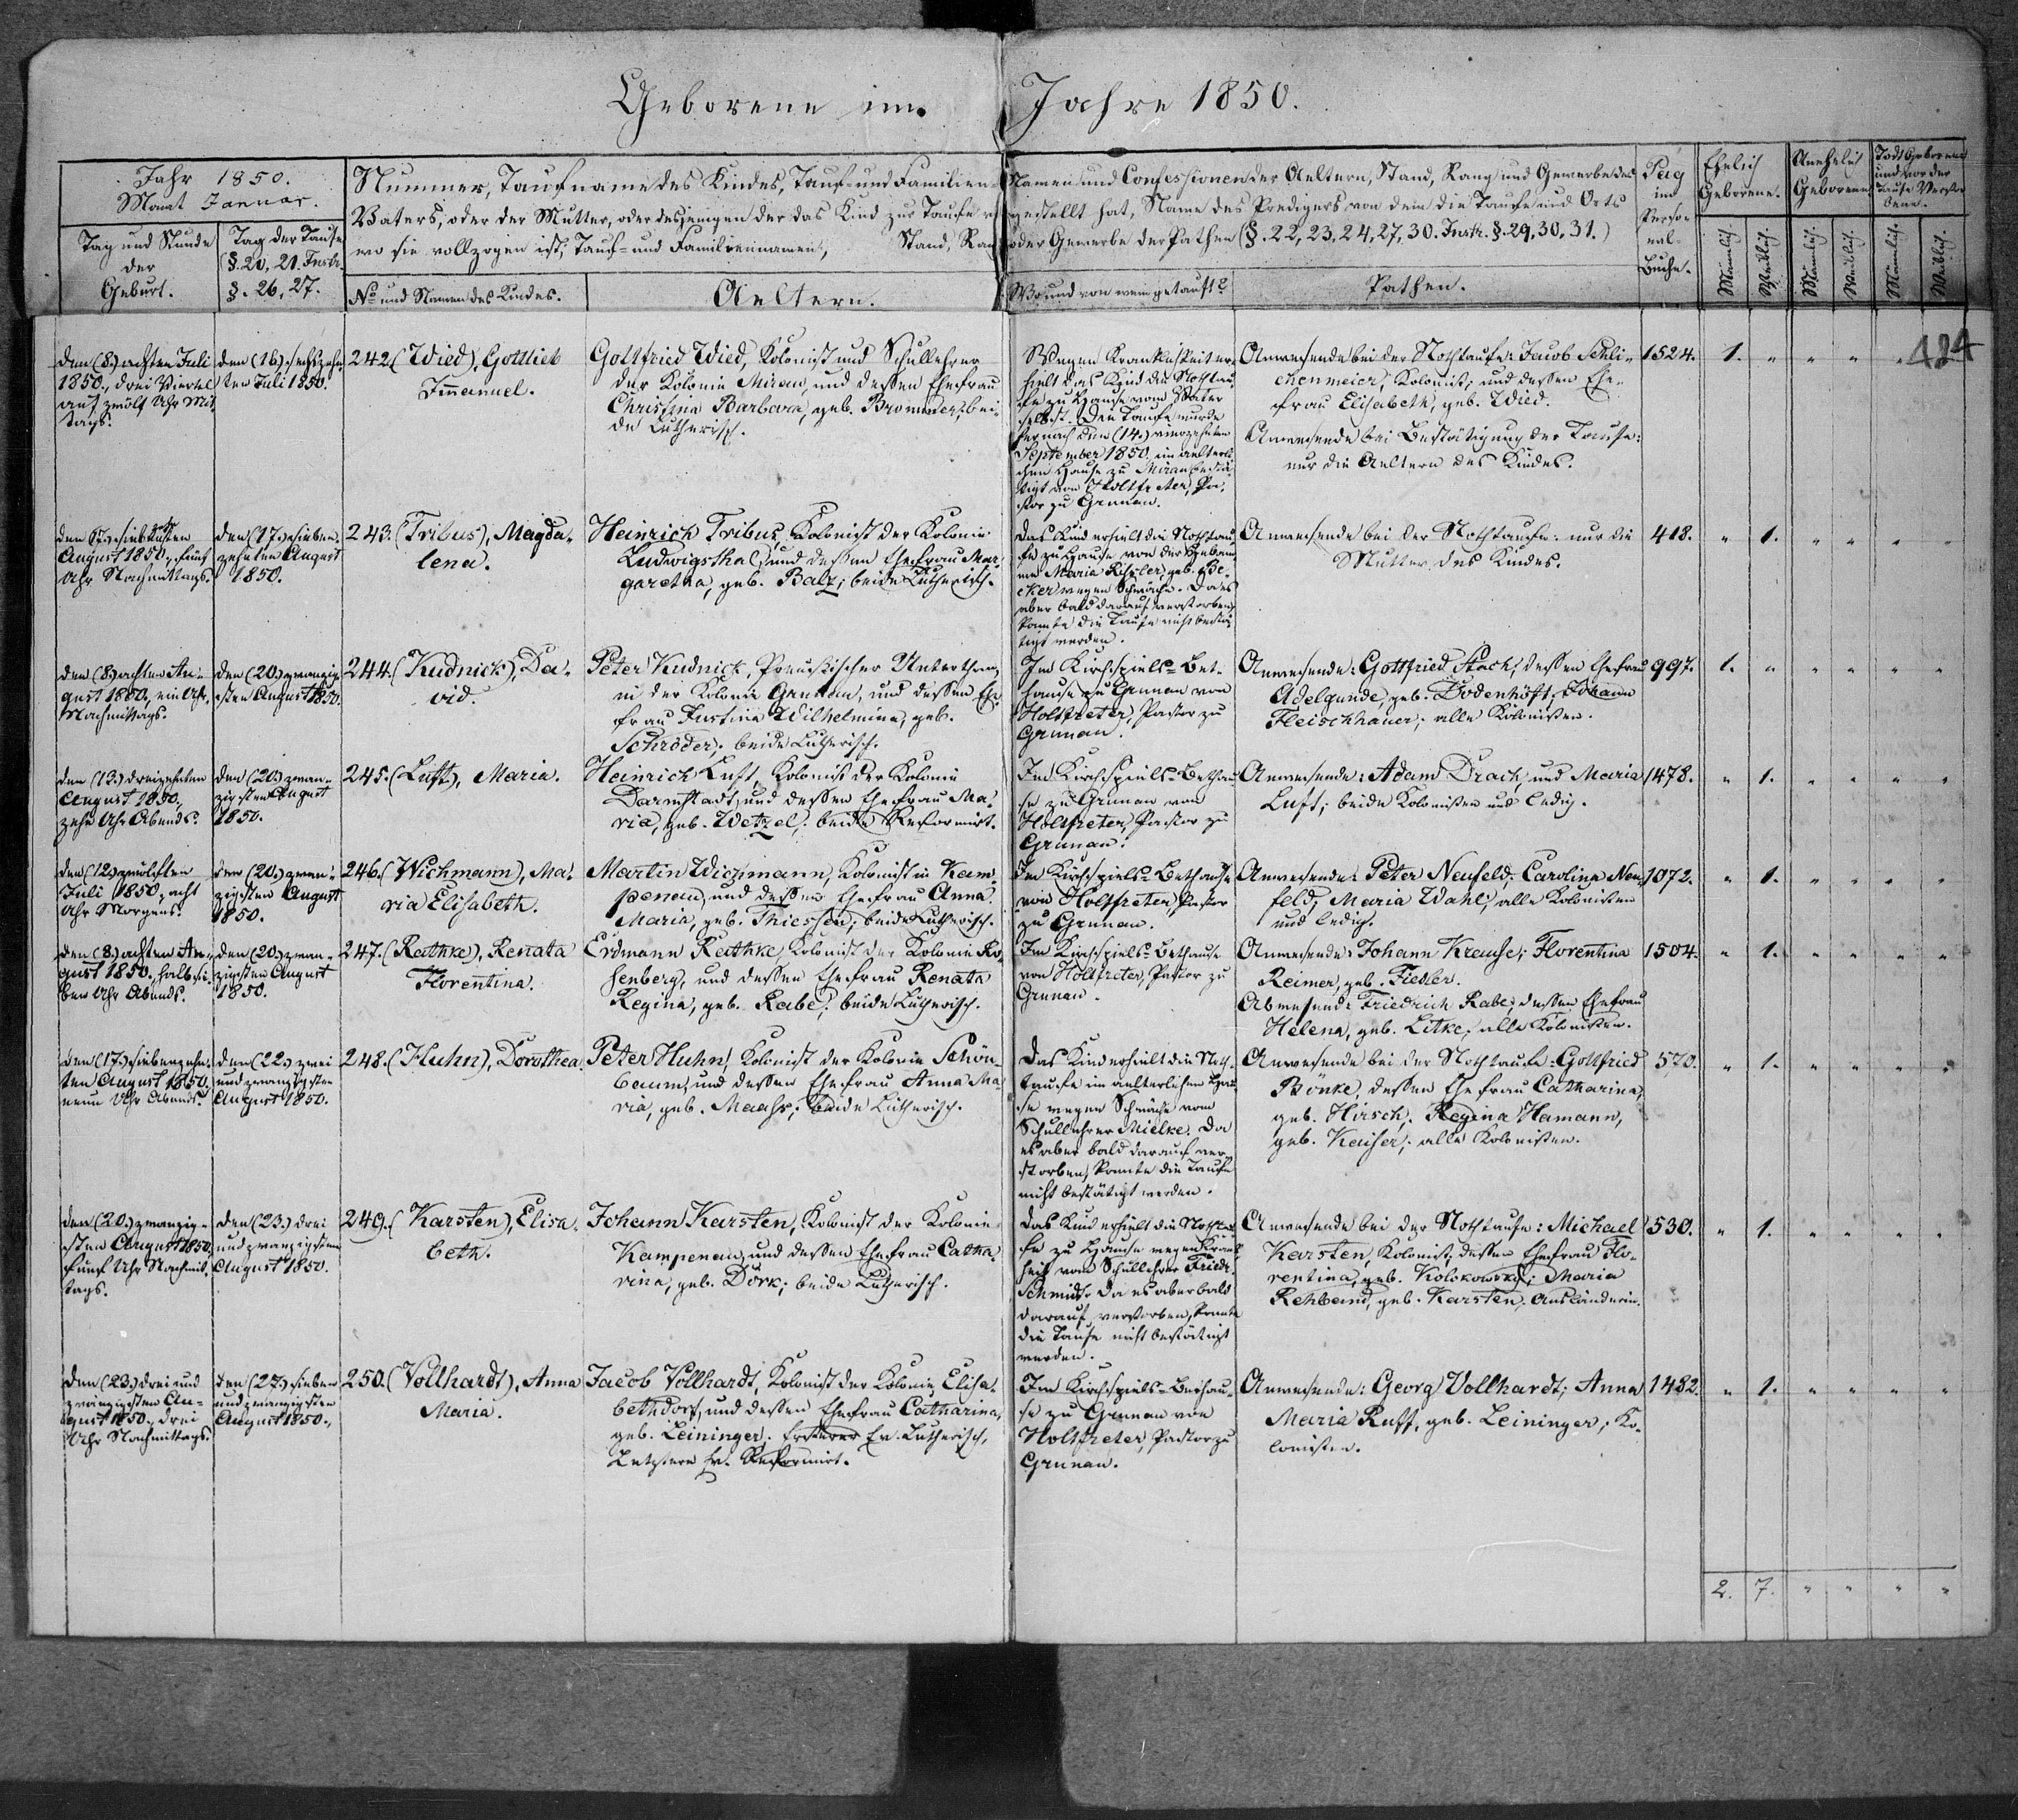 Geborene im Jahre 1850.
Jahr 1850.
Monat Januar.
Tag und Stunde
der
Geburt.
Tag der Taufe
(§. 20, 21. Instr.
§. 26, 27.
Nummer, Taufname des Kindes, Tauf- und Familien-
Vaters, oder der Mutter, oder desjenigen der das Kind zur Taufe
wo sie vollzogen ist, Tauf- und Familiennamen, Stand, Rang
No und Namen des Kindes.
Aeltern.
Namen und Confessionen der Aeltern, Stand, Rang und Gewerbe des
gestellt hat, Name des Predigers von dem die Taufe und Orts
oder Gewerbe der Pathen (§. 22, 23, 24, 27, 30. Instr. §. 29, 30, 31.)
Wo und von wem getauft?
Pathen.
Pag
im
Perso-
nal-
Buche.
Ehelich
Geborene.
Unehelich
Geborene
Todt Geborene
und vor der
Taufe Verstor-
bene.
Männlich.
Weiblich.
Männlich.
Weiblich.
Männlich.
Weiblich.
434
den (8.) achten Juli
1850., drei Viertel
auf zwölf Uhr Mit-
tags.
den (16.) sechszehn-
ten Juli 1850.
242. (Wied), Gottlieb
Immanuel.
Gottfried Wied, Kolonist und Schullehrer
der Kolonie Mirau, und dessen Ehefrau
Christina Barbara, geb. bei-
de Lutherisch.
Wegen Krankheit er-
hielt das Kind die Nothtau-
fe zu Hause vom Vater
selbst. Die Taufe wurde
hernach den (14.) vierzehnten
September 1850. im aelterli-
chen Hause zu Mirau bestä-
tigt von Holtfreter, Pa-
stor zu Grunau.
Anwesende bei der Nothtaufe: Jacob Schli-
chenmeier, Kolonist; und dessen Ehe-
frau Elisabeth, geb. Wied.
Anwesende bei Bestätigung der Taufe:
nur die Aeltern des Kindes.
1524. 1. " " " "
den siebenten
August 1850., fünf
Uhr Nachmittags.
den (17.) sieben-
zehnten August
1850.
243. (Tribus), Magda-
lena.
Heinrich Tribus, Kolonist der Kolonie
Ludwigsthal, und dessen Ehefrau Mar-
garetha, geb. Balz; beide Lutherisch.
Das Kind erhielt die Nothtau-
fe zu Hause von der Hebam-
me Maria geb. Be-
cker wegen Schwäche. Da es
aber bald darauf verstorben,
konnte die Taufe nicht bestä-
tigt werden.
Anwesende bei der Nothtaufe: nur die
Mutter des Kindes.
418. " 1. " " " "
den (8.) achten Au-
gust 1850., ein Uhr
Nachmittags.
den (20.) zwanzig-
sten August 1850.
244. (Kudnick), Da-
vid.
Peter Kudnick, Preußischer Unterthan,
in der Kolonie Grunau, und dessen Ehe-
frau Justina Wilhelmina, geb.
Schröder; beide Lutherisch.
Im Kirchspiels-Bet-
hause zu Grunau von
Holtfreter, Pastor zu
Grunau.
Anwesende: Gottfried Stach; dessen Ehefrau
Adelgunde, geb. Dodenhöft; Johann
Fleischhauer; alle Kolonisten.
997. 1. " " " " "
den (13.) dreizehnten
August 1850.,
zehn Uhr Abends.
den (20.) zwan-
zigsten August
1850.
245. (Luft), Maria.
Heinrich Luft, Kolonist der Kolonie
Darmstadt, und dessen Ehefrau Ma-
ria, geb. Wetzel; beide Reformirt.
Im Kirchspiels-Bethau-
se zu Grunau von
Holtfreter, Pastor zu
Grunau.
Anwesende: Adam Drach, und Maria
Luft; beide Kolonisten und ledig.
1478. " 1. " " " "
den (12.) zwölften
Juli 1850., acht
Uhr Morgens.
den (20.) zwan-
zigsten August
1850.
246. (Wichmann), Ma-
ria Elisabeth.
Martin Wichmann, Kolonist in Kam-
penau, und dessen Ehefrau Anna
Maria, geb. Thiessen; beide Lutherisch.
Im Kirchspiels-Bethause
von Holtfreter, Pastor
zu Grunau.
Anwesende: Peter Neufeld; Carolina Neu-
feld; Maria Wahl; alle Kolonisten
und ledig.
1072. " 1. " " " "
den (8.) achten Au-
gust 1850., halb sie-
ben Uhr Abends.
den (20.) zwan-
zigsten August
1850.
247. (Rathke), Renata
Florentina.
Erdmann Rathke, Kolonist der Kolonie Ro-
senberg, und dessen Ehefrau Renata
Regina, geb. Rabe; beide Lutherisch.
Im Kirchspiels-Bethause
von Holtfreter, Pastor zu
Grunau.
Anwesende: Johann Krause; Florentina
Reimer, geb. Fiedler.
Abwesende: Friedrich Rabe; dessen Ehefrau
Helena, geb. Litke; alle Kolonisten.
1504. " 1. " " " "
den (17.) siebenzehn-
ten August 1850.,
neun Uhr Abends.
den (22.) zwei
und zwanzigsten
August 1850.
248. (Huhn), Dorothea.
Peter Huhn, Kolonist der Kolonie Schön-
baum, und dessen Ehefrau Anna Ma-
ria, geb. Maahs; beide Lutherisch.
Das Kind erhielt die Noth-
taufe im aelterlichen Hau-
se wegen Schwäche vom
Schullehrer Mielke. Da
es aber bald darauf ver-
storben, konnte die Taufe
nicht bestätigt werden.
Anwesende bei der Nothtaufe: Gottfried
Bönke, dessen Ehefrau Catharina,
geb. Hirsch; Regina Hamann,
geb. Kaiser; alle Kolonisten.
570. " 1. " " " "
den (20.) zwanzig-
sten August 1850.,
fünf Uhr Nachmit-
tags.
den (23.) drei
und zwanzigsten
August 1850.
249. (Karsten), Elisa-
beth.
Johann Karsten, Kolonist der Kolonie
Kampenau, und dessen Ehefrau Catha-
rina, geb. Dörk; beide Lutherisch.
Das Kind erhielt die Nothtau-
fe zu Hause wegen Krank-
heit vom Schullehrer Friedr.
Schmidt. Da es aber bald
darauf verstorben, konnte
die Taufe nicht bestätigt
werden.
Anwesende bei der Nothtaufe: Michael
Karsten, Kolonist; dessen Ehefrau Flo-
rentina, geb. Kolokowsky; Maria
Rehband, geb. Karsten, Ausländerin.
530. " 1. " " " "
den (23.) drei und
zwanzigsten Au-
gust 1850., drei
Uhr Nachmittags.
den (27.) sieben
und zwanzigsten
August 1850.
250. (Vollhardt), Anna
Maria.
Jacob Vollhardt, Kolonist der Kolonie Elisa-
bethdorf, und dessen Ehefrau Catharina,
geb. Leininger. Ersterer Ev. Lutherisch,
Letztere Ev. Reformirt.
Im Kirchspiels-Bethau-
se zu Grunau von
Holtfreter, Pastor zu
Grunau.
Anwesende: Georg Vollhardt; Anna
Maria Ruff, geb. Leininger; Ko-
lonisten.
1482. " 1. " " " "
2. 7. " " " "